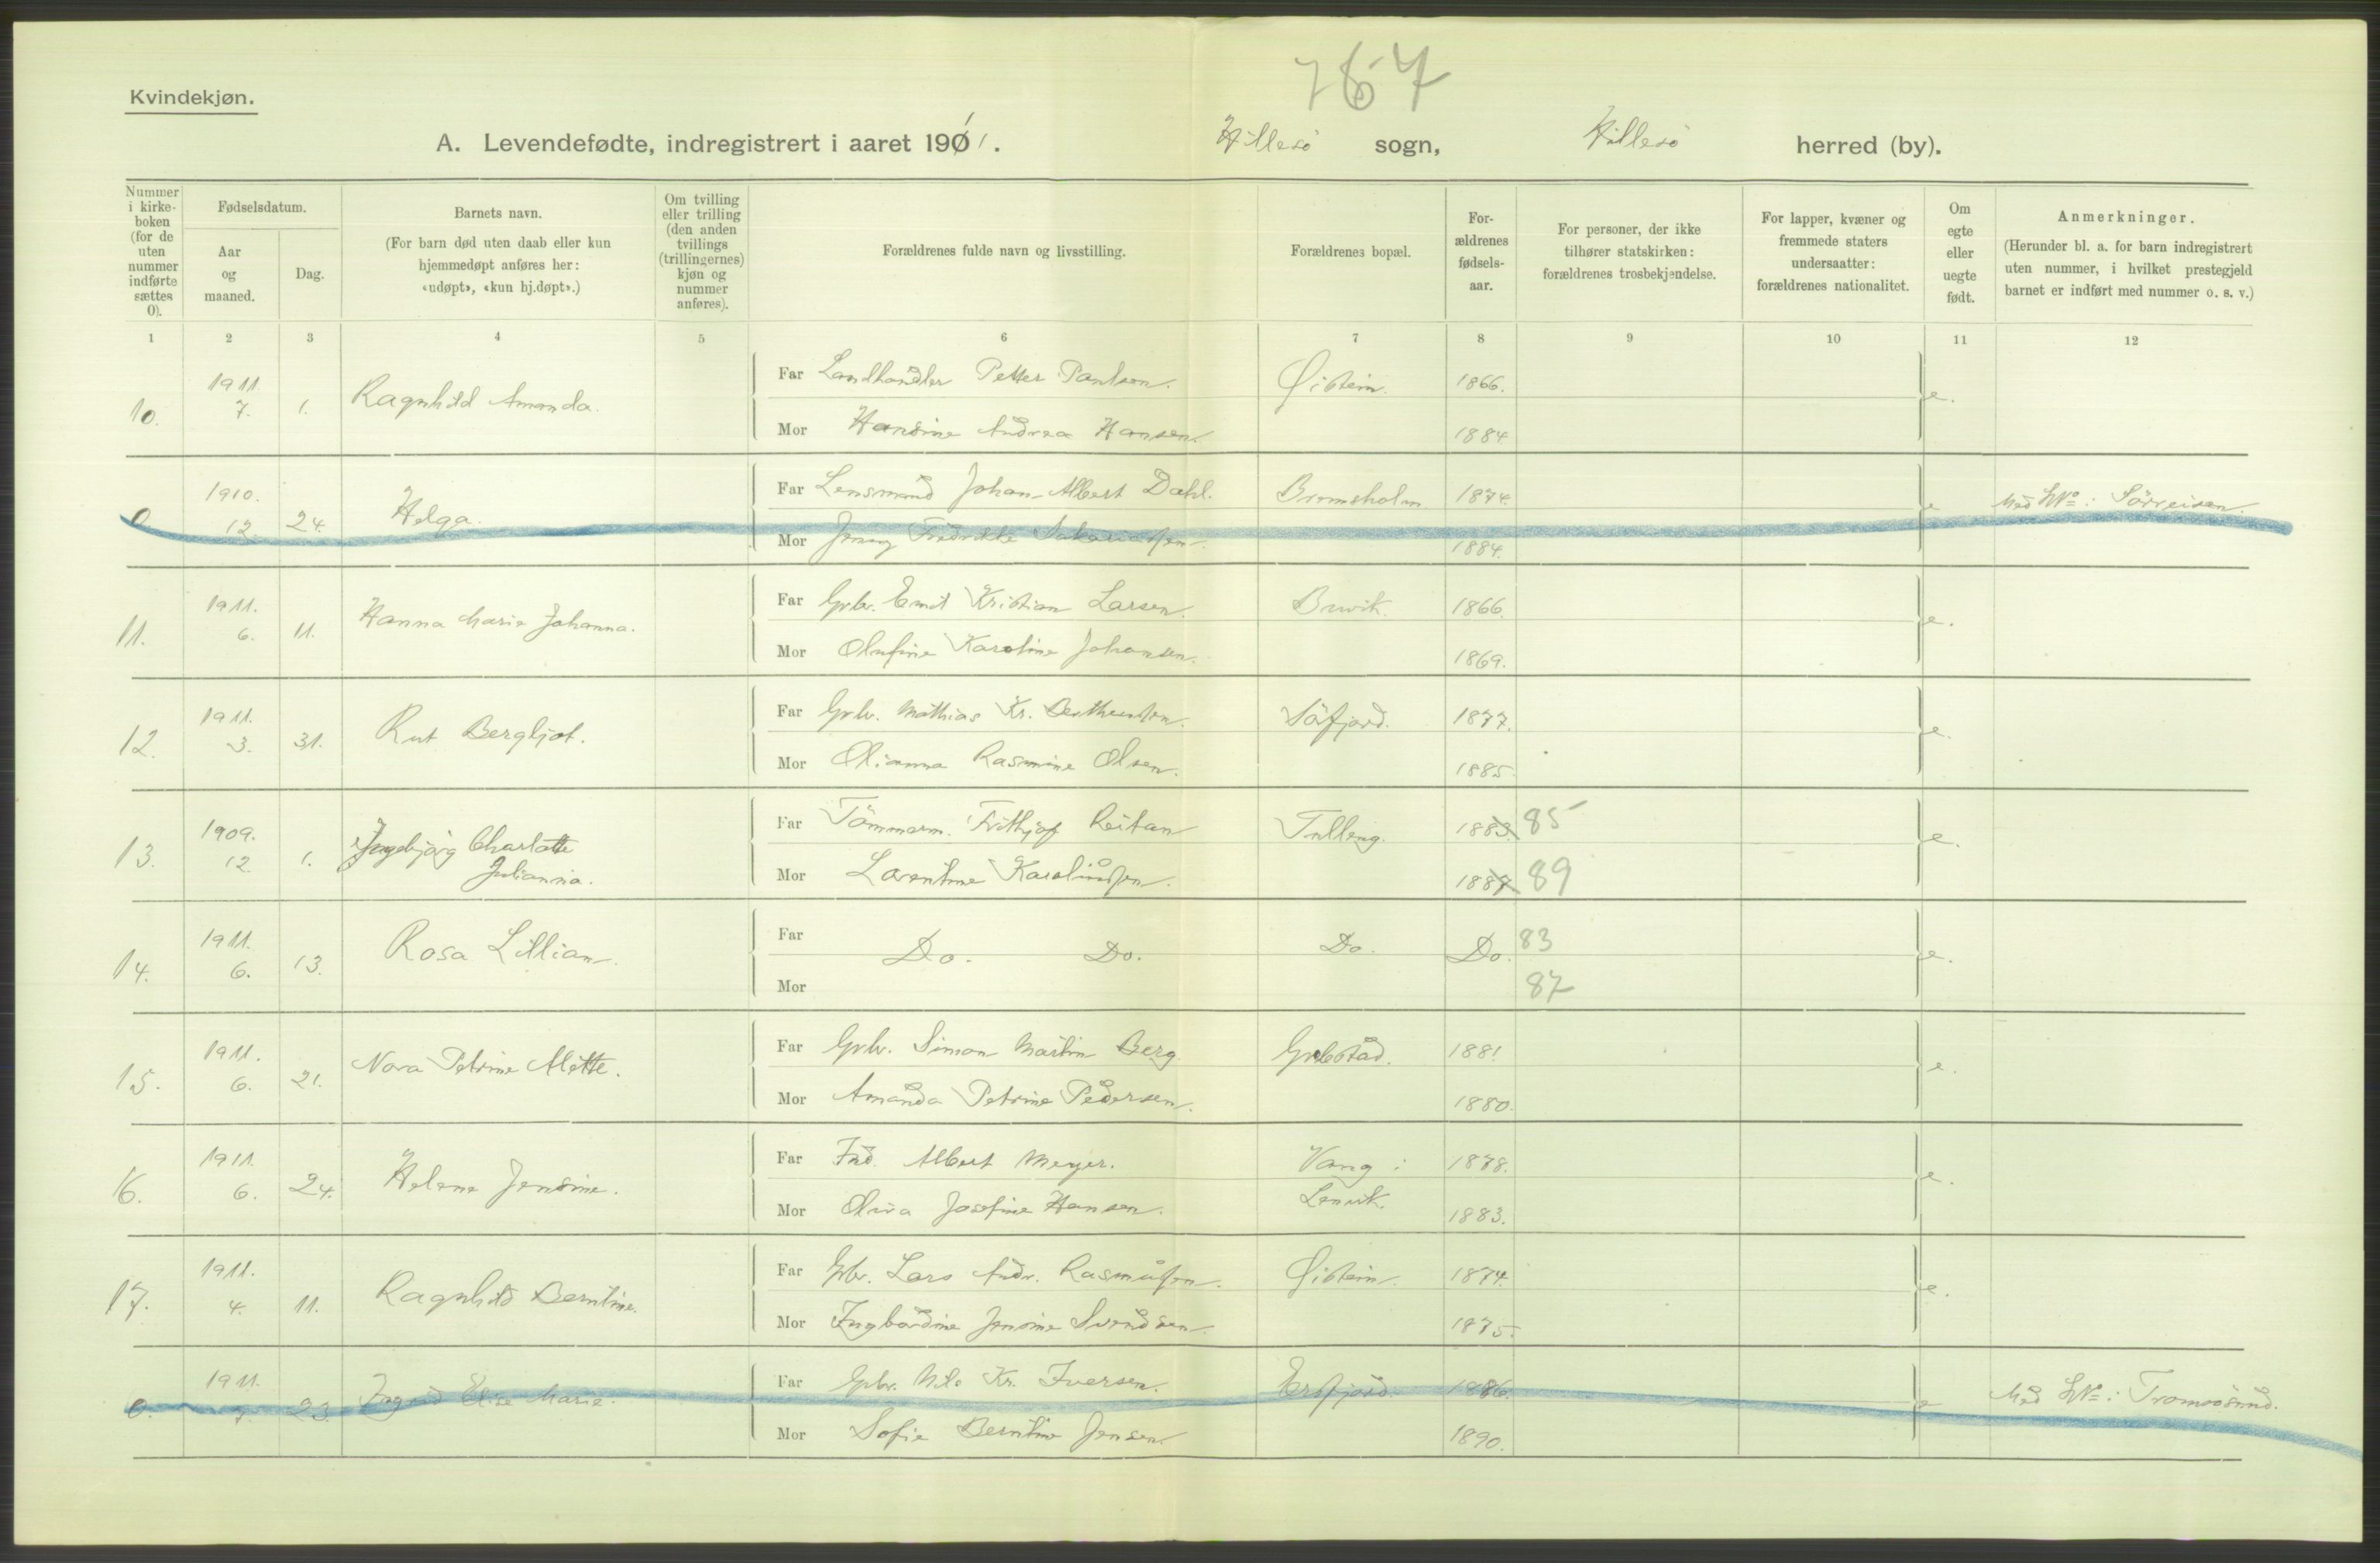 767
Kvindekjøn.
A. Levendefødte, indregistrert i aaret 1911. Hillesö sogn, Hillesö herred (by).
Nummer i kirkeboken (for de uten nummer indførte sættes 0).
Fødselsdatum.
Aar og maaned.
Dag.
Barnets navn.
(For barn død uten daab eller kun hjemmedøpt anføres her: «udøpt», «kun hj.døpt».)
Om tvilling eller trilling (den anden tvillings (trillingernes) kjøn og nummer anføres).
Forældrenes fulde navn og livsstilling.
Forældrenes bopæl.
Forældrenes fødselsaar.
For personer, der ikke tilhører statskirken: forældrenes trosbekjendelse.
For lapper, kvæner og fremmede staters undersaatter: forældrenes nationalitet.
Om egte eller uegte født.
Anmerkninger.
(Herunder bl. a. for barn indregistrert uten nummer, i hvilket prestegjeld barnet er indført med nummer o. s. v.)
1 2 3 4 5 6 7 8 9 10 11 12
10. 1911. 7. 1. Ragnhild Amanda. Far Landhandler Petter Paulsen. Øistein. 1866. e.
Mor Hansine Andrea Hansen. 1884
0 1910. 12. 24. Helga. Far Lensmand Johan Albert Dahl. Bremsholm 1874. e Med No i Sörreisen.
Mor Jenny Fredrikke 1884.
11. 1911. 6. 11. Hanna Marie Johanna. Far Grbr. Emil Kristian Larsen. Buvik. 1866. e.
Mor Olufine Karoline Johansen. 1869.
12. 1911. 3. 31. Rut Bergljot. Far Grbr. Mathias Kr. Bertheussen. Söfjord. 1877. e.
Mor Olianna Rasmine Olsen. 1885.
13. 1909. 12. 1. Ingebjørg Charlotte Julianna. Far Tömmerm. Frithjof Reitan Tulleng. 1883. 85 e.
Mor Lorentine Karoliussen. 1887 89
14. 1911. 6. 13. Rosa Lillian. Far Do. Do. Do. Do. 83 e.
Mor 87
15. 1911. 6. 21. Nora Petrine Mette. Far Grbr. Simon Martin Berg. Grebstad. 1881 e.
Mor Amanda Petrine Pedersen. 1880.
16. 1911. 6. 24. Helene Jensine. Far Ind. Albert Meyer. Vang i 1878. e.
Mor Oliva Josefine Hansen. Lenvik. 1883.
17. 1911. 4. 11. Ragnhild Berntine. Far Grbr. Lars Andr. Rasmussen. Øistein. 1874. e.
Mor Ingbordine Jensine Svendsen. 1875.
0. 1911. 7 23. Ingrid Elise Marie. Far Grbr. Nils Kr. Iversen. Ersfjord. 1886. e Med No i Tromsösund.
Mor Sofie Berntine Jensen. 1890.